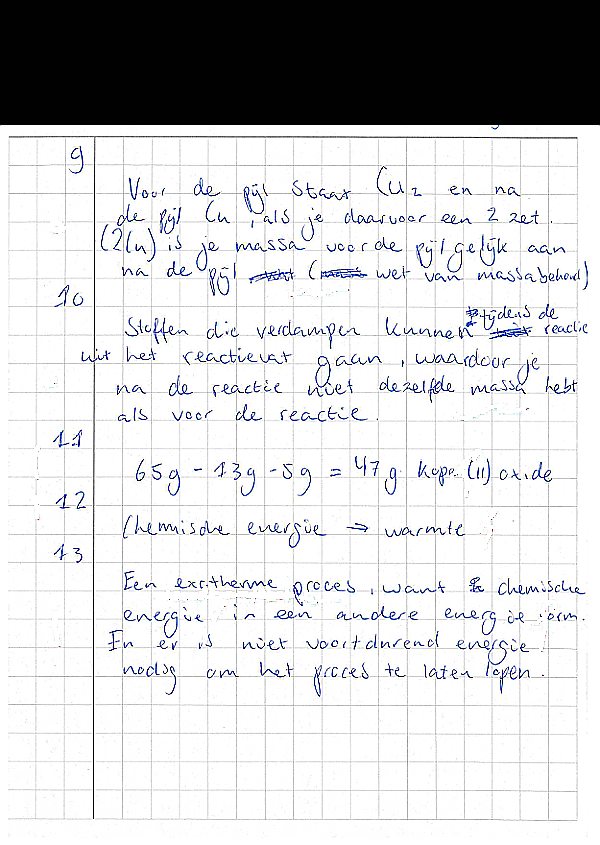 9
Voor de pijl staat Cu2 en na
de pijl Cu, als je daarvoor een 2 zet.
(2Cu) is je massa voor de pijl gelijk aan
na de pijl (wet van massabehoud)
10
Stoffen die verdampen kunnen tijdens de reactie
uit het reactievat gaan, waardoor je
na de reactie niet dezelfde massa hebt
als voor de reactie.
11
65g - 13g - 5g = 47g koper (II) oxide
12
Chemische energie → warmte
13
Een exotherme proces, want chemische
energie in een andere energie vorm.
En er is niet voortdurend energie
nodig om het proces te laten lopen.